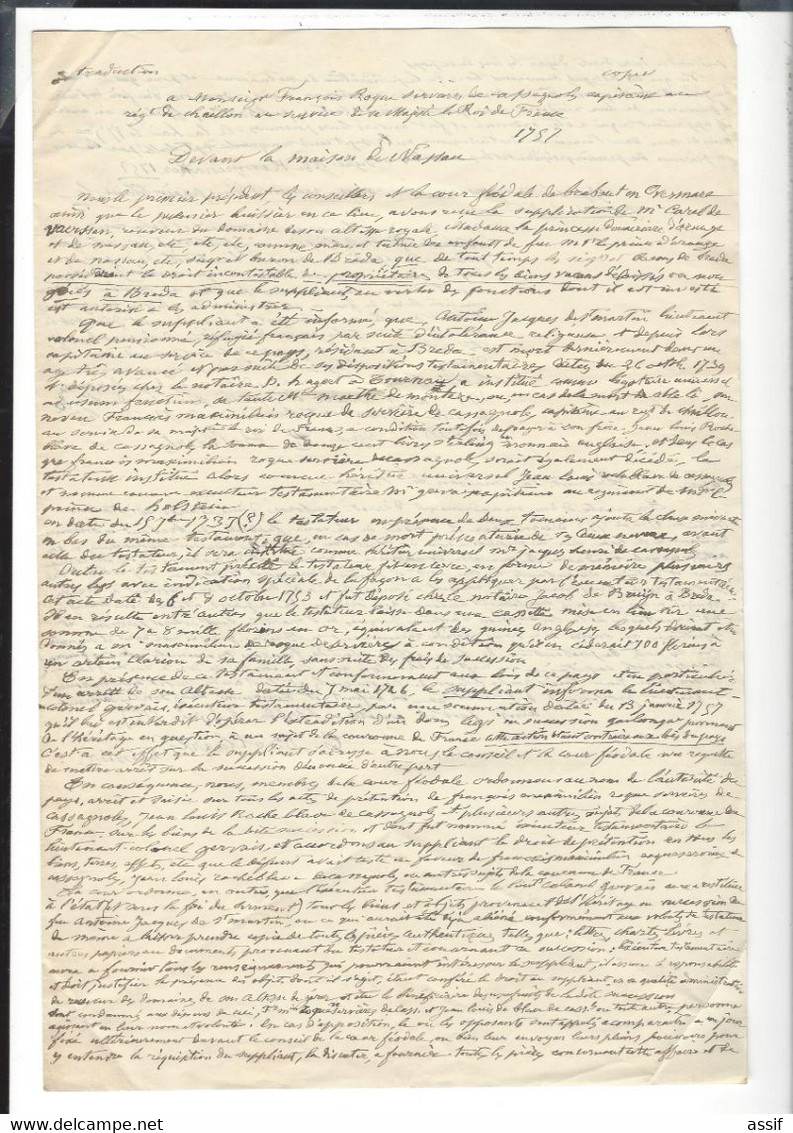 traduction copie
a Monsieur François Roque Servières de cassagnols capitaine au
régt de chaillou au service de sa Majesté le Roi de France
1757
Devant la maison de Nassau
Nous le premier président, les conseillers et la cour féodale de brabant en
ainsi que le premier huissier en ce lieu, avons reçu la supplication de Mr Carel de
receveur du domaine de son altesse royale, Madame la princesse douairière d'orange
et de nassau, etc, etc, etc, comme mère et tutrice des enfants de feu Mr le prince d'orange
et de nassau, etc, seigr et baron de bréda que de tout temps les seigrs barons de breda
possédaient le droit incontestable de propriétaire de tous les biens vacans
à Bréda et que le suppliant, au vertu des fonctions dont il est investi
est autorisé à les administrer.
Que le suppliant a été informé, que Antoine Jacques de St martin lieutenant
colonel pensionné, réfugié français par suite d'intolérance religieuse et depuis lors
capitaine au service de ce pays, résidant à Bréda est mort dernièrement dans un
age très avancé et par suite de ses dispositions testamentaires dates du 26 octb. 1739
et déposées chez le notaire D. à Tournay, a institué comme légataire universel
maître de ou, en cas de la mort de celle-ci, son
neveu François maximilien roque de servière de cassagnols, capitaine au regt de chaillou
au service de sa majesté le roi de France, à condition toutefois, de payer à son frère Jean louis Roche
blave de cassagnols la somme de douze cent livres sterling monnaie anglaise, et dans le cas
que francois maximilien roque servière de cassagnols, serait également décédé, le
testateur institue alors comme héritier universel Jean louis rocheblave de cassagnols
et nomme comme executeur testamentaire Mr gervais capitaine au regiment de Mr le
prince de holstein
en date du 15 7bre 1737 (?) le testateur en présence de deux temoins ajouta la clause suivante
en bas du même testament, que, en cas de mort prématurée de ses deux neveux, avant
celle du testateur, il sera institué comme héritier universel Mr jacques henri de cassagnols
Outre le testament précité le testateur fit encore, en forme de mémoire plusieurs
autres legs avec indication spéciale de la façon de les appliquer par l'executeur testamentaire.
Cet acte date des 6 et 8 octobre 1753 et fut déposé chez le notaire Jacob de Bruijn à Bréda.
Il en résulte entr'autres que le testateur laisse dans une cassette une
somme de 7 à 8 mille florins en or, équivalent des guinées anglaises, lesquels seront
donnés a mr maximilien de roque de servières à condition qu'il en céderait 700 florins à
un certain Clarion de sa famille, sans suite des frais de succession
En présence de ce testament et conformement aux lois de ce pays et en particulier
d'un arrêté de son Altesse datée du 7 mai 1726, le suppliant informa le lieutenant-
colonel gervais, executeur testamentaire, par une sommation datée du 13 janvier 1757
qu'il lui est interdit d'opérer l'extradition d'un don, legs, ou succession quelconque provenant
de l'héritage en question, à un sujet de la couronne de France, cette action étant contraire aux lois du pays
C'est à cet effet que le suppliant s'adresse à nous, le conseil et la cour féodale une requête
de mettre arrêt sur la succession d'autre part
En conséquence, nous, membres de la cour féodale ordonnons au nom de l'autorité du
pays, arrêt et saisie sur tous les actes de prétention de françois maximilien roque servières de
cassagnols, Jean louis Roche blave de cassagnols et plusieurs autres sujets de la couronne de
France sur les biens de la dite succession et dont fut nommé executeur testamentaire le
lieutenant-colonel gervais, et accordons au suppliant le droit de prétention en tous les
biens, terres, effets, etc que le défunt avait testé en faveur de françois maximilien roque servière de
cassagnols, Jean louis rocheblave de cassagnols, ou autres sujets de la couronne de France
La cour ordonne, en outre, que l'executeur testamentaire le lieut colonel gervais aura à restituer
à l'état (et sous la foi du serment) tous les biens et objets provenant de l'héritage ou succession de
feu Antoine Jacques de St martin, en ce qui aurait été déjà aliéné conformément aux volontés du testateur
de même à laisser prendre copie de toutes les pièces authentiques, telles que: lettres, chartes, livres et
autres papiers ou documents provenant du testateur et concernant sa succession; l'exécuteur testamentaire
aura à fournir tous les renseignements qui pourraient intéresser le suppliant, il assume la responsabilité
et doit justifier la présence des objets dont il s'agit, étant confère le droit au suppliant, en sa qualité administrateur
de receveur des domaines, de son altesse de la dite succession
sont condamnés aux dépens de ceci, Fs mn roque servières de cass. et Jean louis de blave de cass. ou toute autre personne
agissant en leur nom et volonté: En cas d'opposition, le ou les opposants sont appelés à comparaître à un jour
fixé ultérieurement devant le conseil de la cour féodale ou bien leur envoyer leurs pleins pouvoirs pour
y entendre la réquisition du suppliant, la discuter, à fournir toutes les pièces concernant cette affaire et de
assif